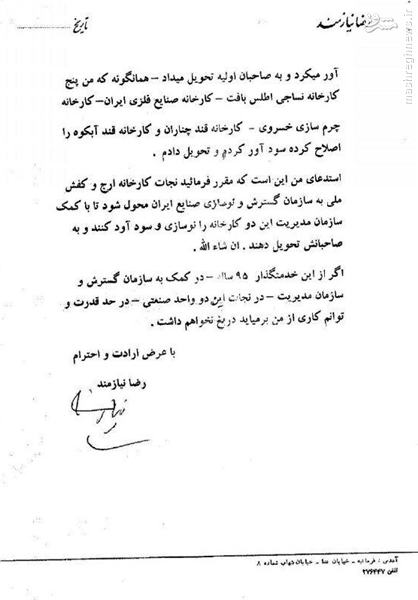 رضا نیازمند
تاریخ
مشرق
mashreghnews.ir
آور میکرد و به صاحبان اولیه تحویل میداد – همانگونه که من پنج
کارخانه نساجی اطلس بافت – کارخانه صنایع فلزی ایران – کارخانه
چرم سازی خسروی – کارخانه قند چناران و کارخانه قند آبکوه را
اصلاح کرده سود آور کردم و تحویل دادم .
استدعای من این است که مقرر فرمائید نجات کارخانه ارج و کفش
ملی به سازمان گسترش و نوسازی صنایع ایران محول شود تا با کمک
سازمان مدیریت این دو کارخانه را نوسازی و سود آود کنند و به
صاحبانش تحویل دهند . ان شاء الله .
اگر از این خدمتگذار ۹۵ ساله – در کمک به سازمان گسترش و
سازمان مدیریت – در نجات این دو واحد صنعتی – در حد قدرت و
توانم کاری از من برمیاید دریغ نخواهم داشت .
با عرض ارادت و احترام
رضا نیازمند
آدرس : فرمانیه – خیابان – خیابان شهاب شماره ۸
تلفن ۲۷۶۴۴۷